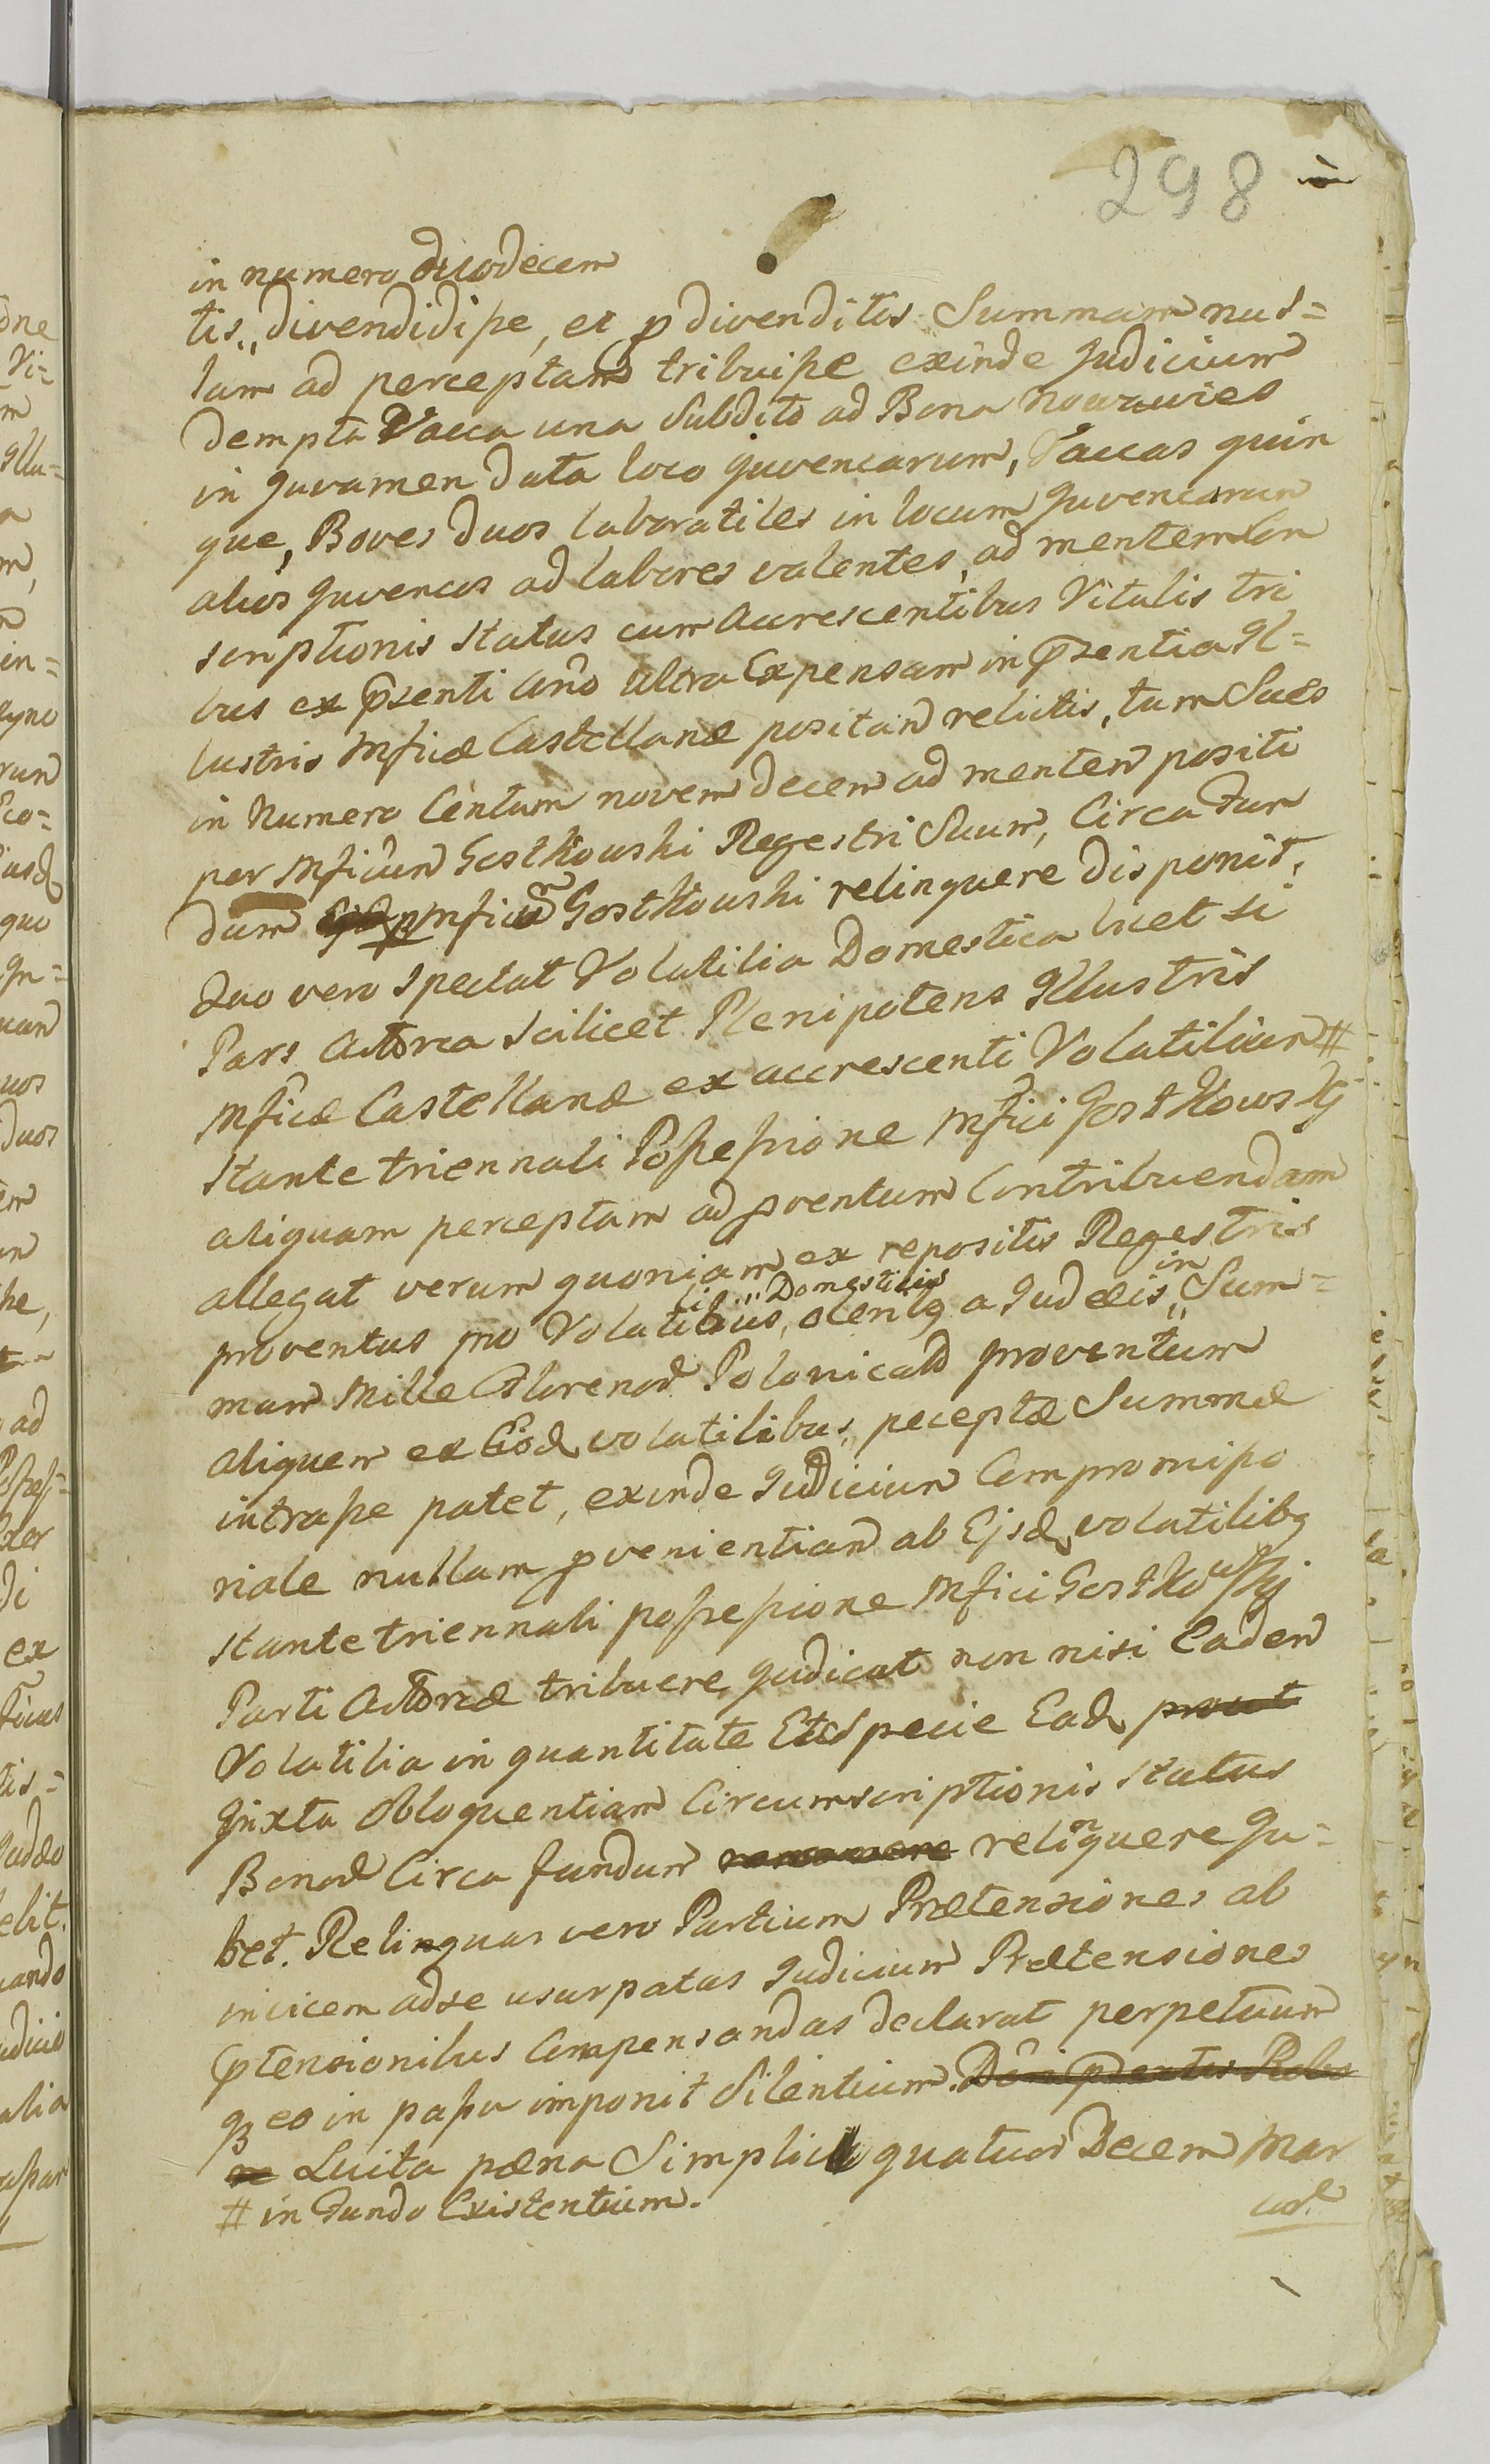 298
in numero duodecem
tis,, divendidisse, et p divenditis Summam nul=
lam ad perceptam tribuisse exinde Judicium
dempta Vacca una Subdito ad Bona
in Juvamen data loco Juvencarum, Vaccas quin
que, Boves duos laboratiles in locum Juvencarum
alios Juvencos ad labores valentes, ad mentem Con
scriptionis Status cum Accrescentibus Vitulis tri
bus ex pñsenti Año ultra Expensam in pñsentia Il=
lustris Mficæ Castellanæ positam relictis, tum Sues
in Numero Centum novem decem ad mentem positi
per Mficum Gostkowski Regestri Suum, Circa Fun
dum Mficum Gostkowski relinquere disponit.
Quo vero spectat Volatilia Domestica licet si
Pars Actorea Scilicet Plenipotens Illustris
Mficæ Castellanæ ex accrescenti Volatilium #
stante triennali Possessione Mfici Gostkowskÿ
aliquam perceptam ad pventum Contribuendam
allegat verum quoniam ex repositis Regestris
proventus pro Volatilibus,,Domesticis a Judæis,,in Sum=
mam Mille Florenor Polonical proventum
aliquem ex Eisd volatilibus, peceptæ Summæ
intrasse patet, exinde Judicium Compromisso
riale nullam pvenientiam ab Ejsd volatilibq
stante triennali possessione Mfici Gostkowskj
Parti Actoreæ tribuere Judicat non nisi Eadem
Volatilia in quantitate Et Specie Ead prout
Juxta Obloquentiam Circumscriptionis Status
Bonor Circa fundum relinquere Ju=
bet. Relinquas vero Partium Prætensiones ab
invicem ad se usurpatas Judicium Prætensiones
Ptensionibus Compensandas declarat perpetuum
q eo in passu imponit Silentium.
Luita pæna Simplici quatuor Decem Mar
# in Fundo Existentium.